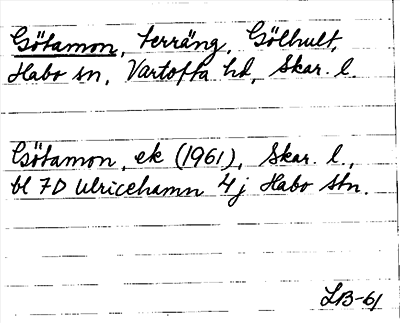 Götamon, terräng, Gölhult,
Habo sn, Vartofta hd, Skar. l.
Götamon, ek (1961), Skar. l.,
bl 7D Ulricehamn 4j Habo Stn.
LB-61